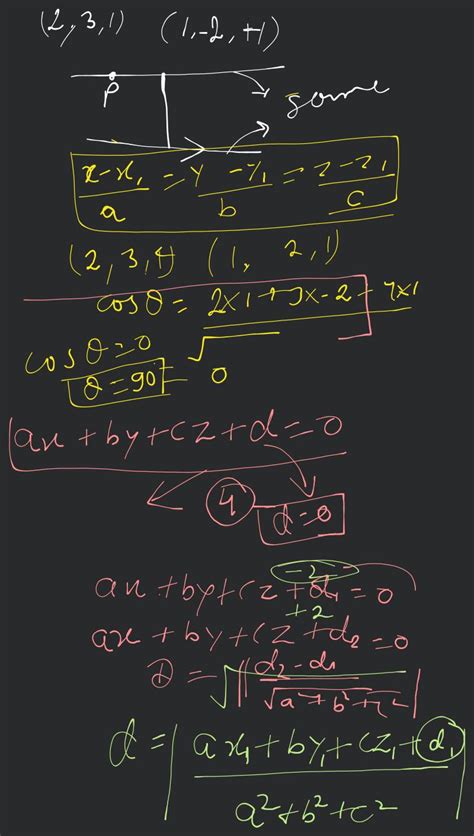 (2,3,1) (1,-2,+1)
P
some
x-x₁/a = y-y₁/b = z-z₁/c
(2,3,4) (1, 2,1)
cosθ = 2x1+3x-2+4x1
√
cosθ=0
θ=90 = 0
ax+by+cz+d=0
4
d=0
-2
ax+by+cz+d₁=0
+2
ax+by+cz+d₂=0
D = √|d₂-d₁/√a²+b²+c²|
d = |ax₁+by₁+cz₁+d₁/a²+b²+c²|